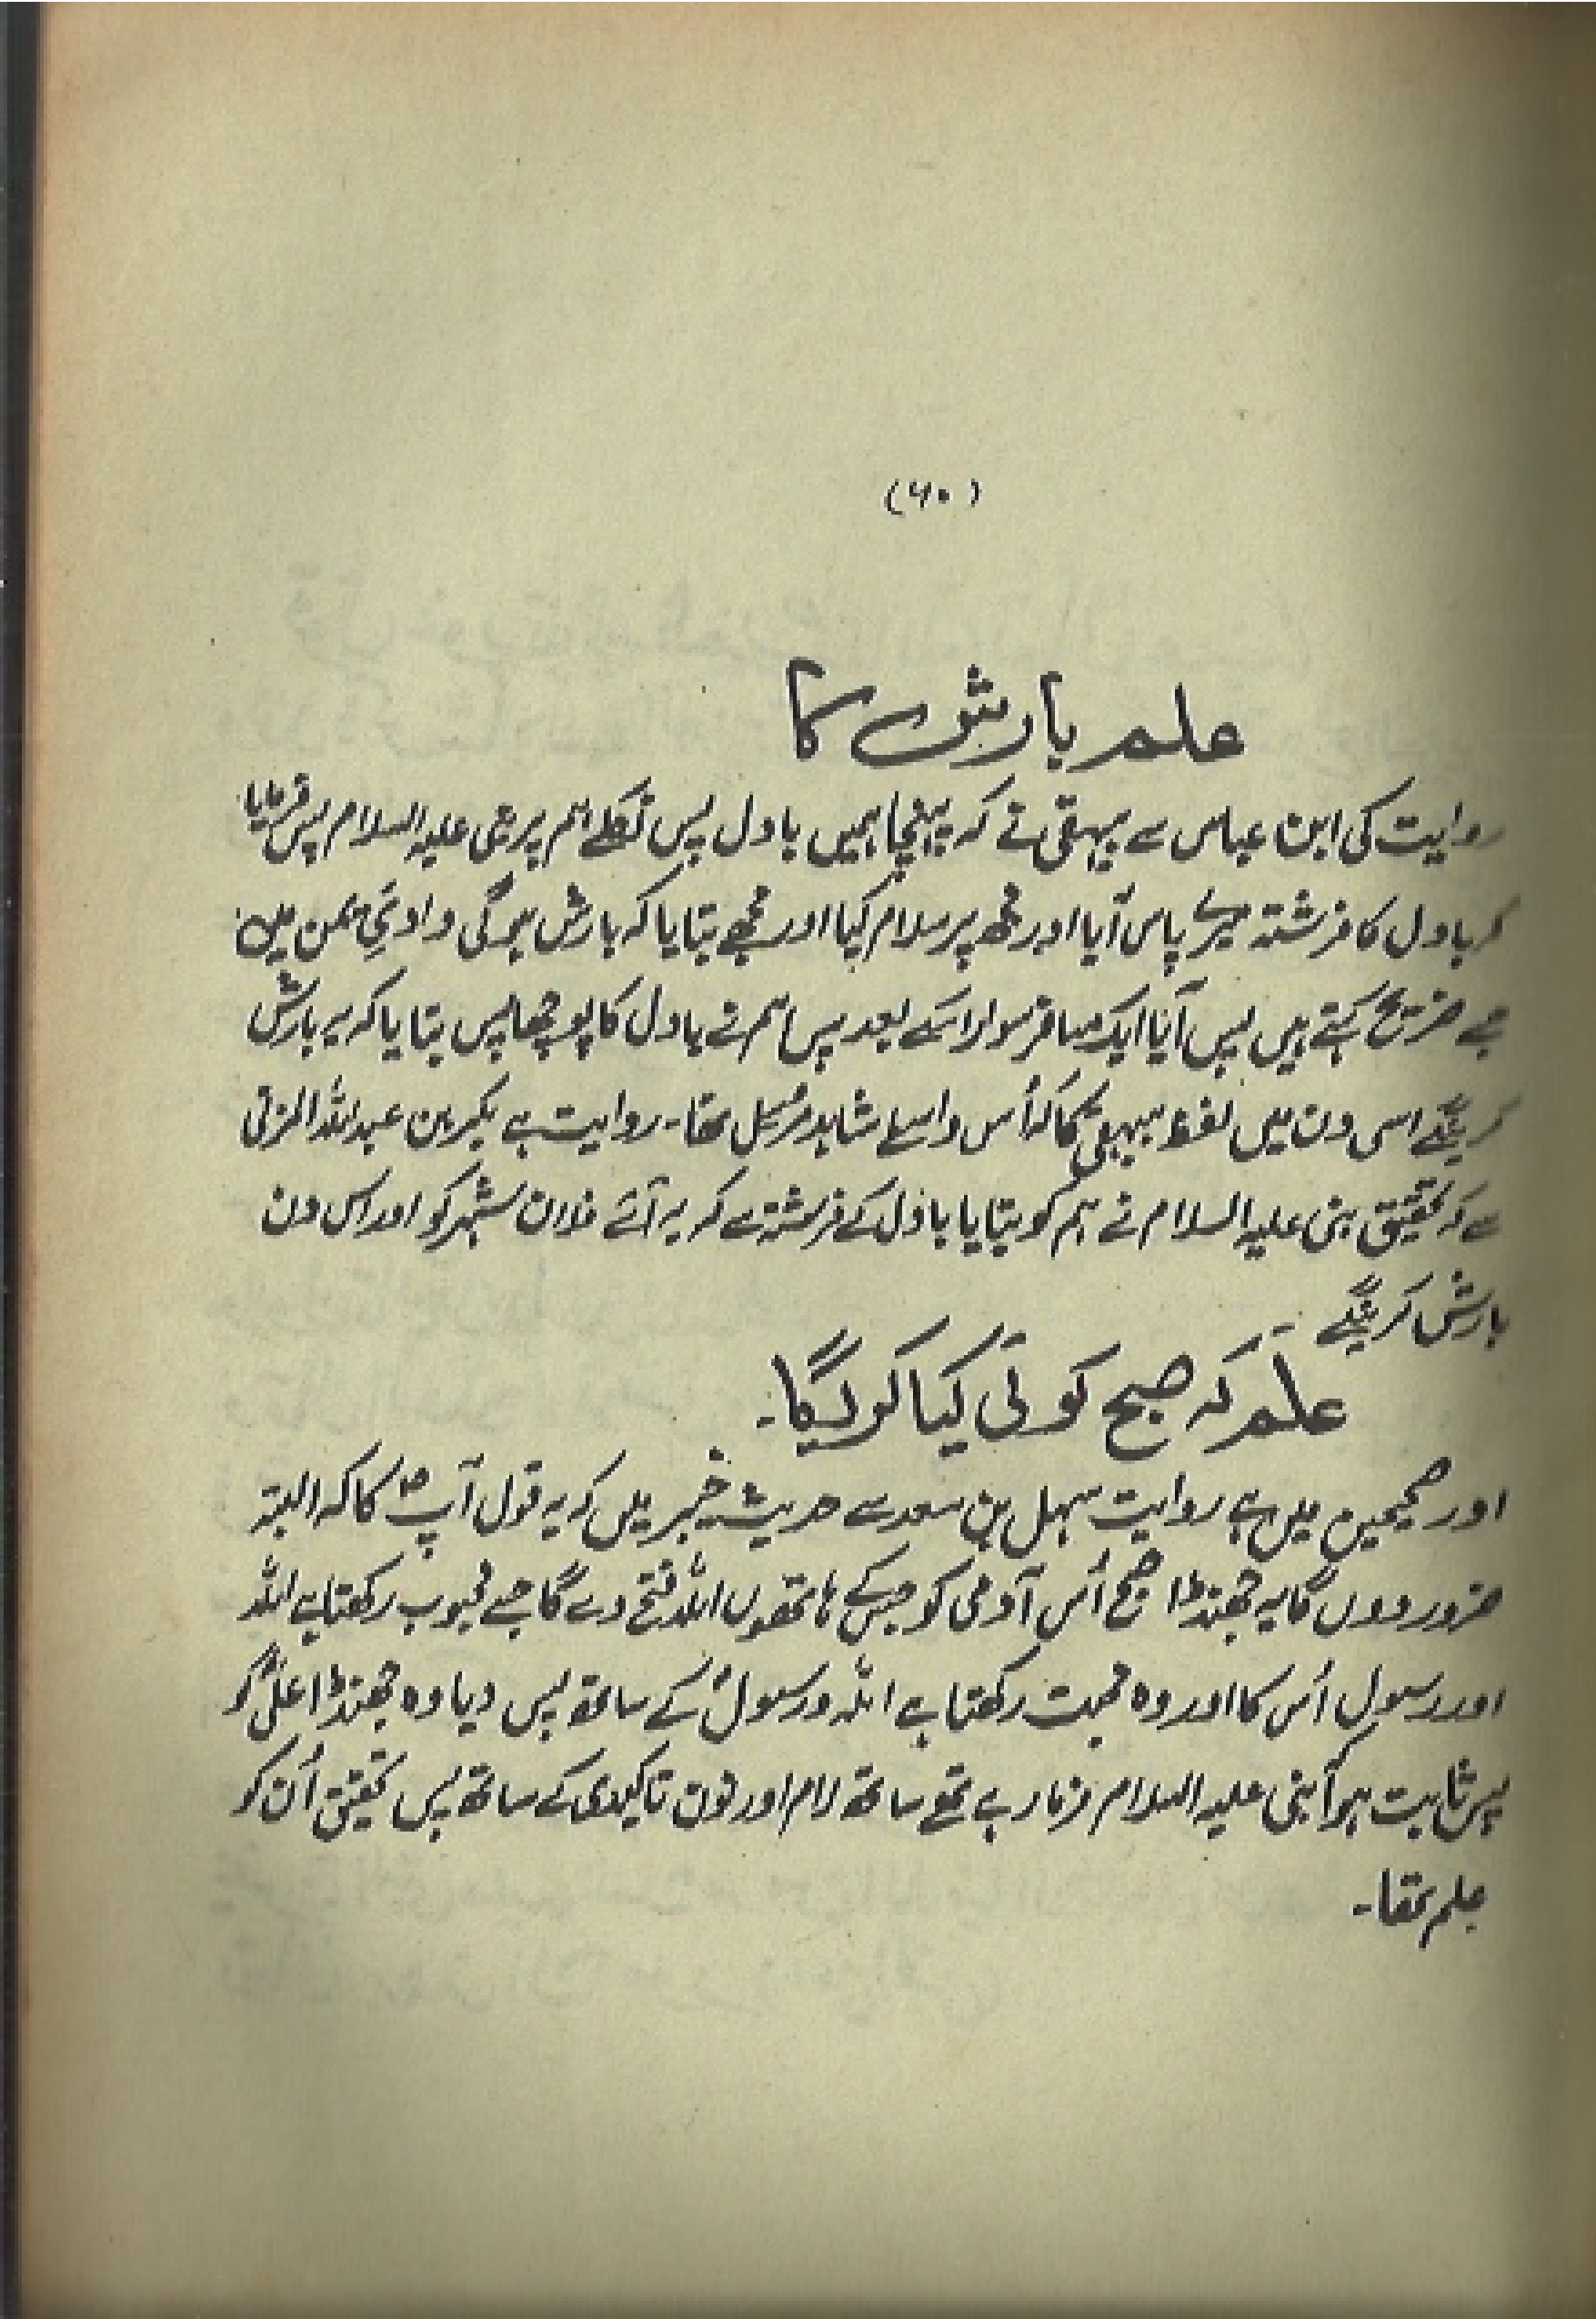 (۶۰)
علم بارش کا
روایت کی ابن عباس سے بیہقی نے کہ پہنچا ہمیں بادل پس نکلے ہم پر نبی علیہ السلام پس فرمایا
کہ بادل کا فرشتہ میرے پاس آیا اور مجھ پر سلام کیا اور مجھے بتایا کہ بارش ہوگی وادئی یمن میں
جسے ضریح کہتے ہیں پس آیا ایک مسافر سوار اسکے بعد پس ہم نے بادل کا پوچھا پس بتایا کہ یہ بارش
کرینگے اسی دن میں لفظ بیہقی کا کہ اُس واسطے شاہد مرسل تھا۔ روایت ہے بکر بن عبداللہ المزنی
سے کہ تحقیق نبی علیہ السلام نے ہم کو بتایا بادل کے فرشتہ سے کہ یہ آئے فلان شہر کو اور اس دن
بارش کرینگے
علم کہ صبح کوئی کیا کریگا۔
اور صحیحین میں ہے روایت سہل بن سعد سے حدیث خیبر میں کہ یہ قول آپؐ کا کہ البتہ
ضرور دوں گا یہ جھنڈا صبح اُس آدمی کو جس کے ہاتھوں اللہ فتح دے گا جسے محبوب رکھتا ہے اللہ
اور رسول اُس کا اور وہ محبت رکھتا ہے اللہ و رسولؐ کے ساتھ پس دیا وہ جھنڈا علیؓ کو
پس ثابت ہوا نبی علیہ السلام فرما رہے تھے ساتھ لام اور نون تاکیدی کے ساتھ پس تحقیق اُن کو
علم تھا۔